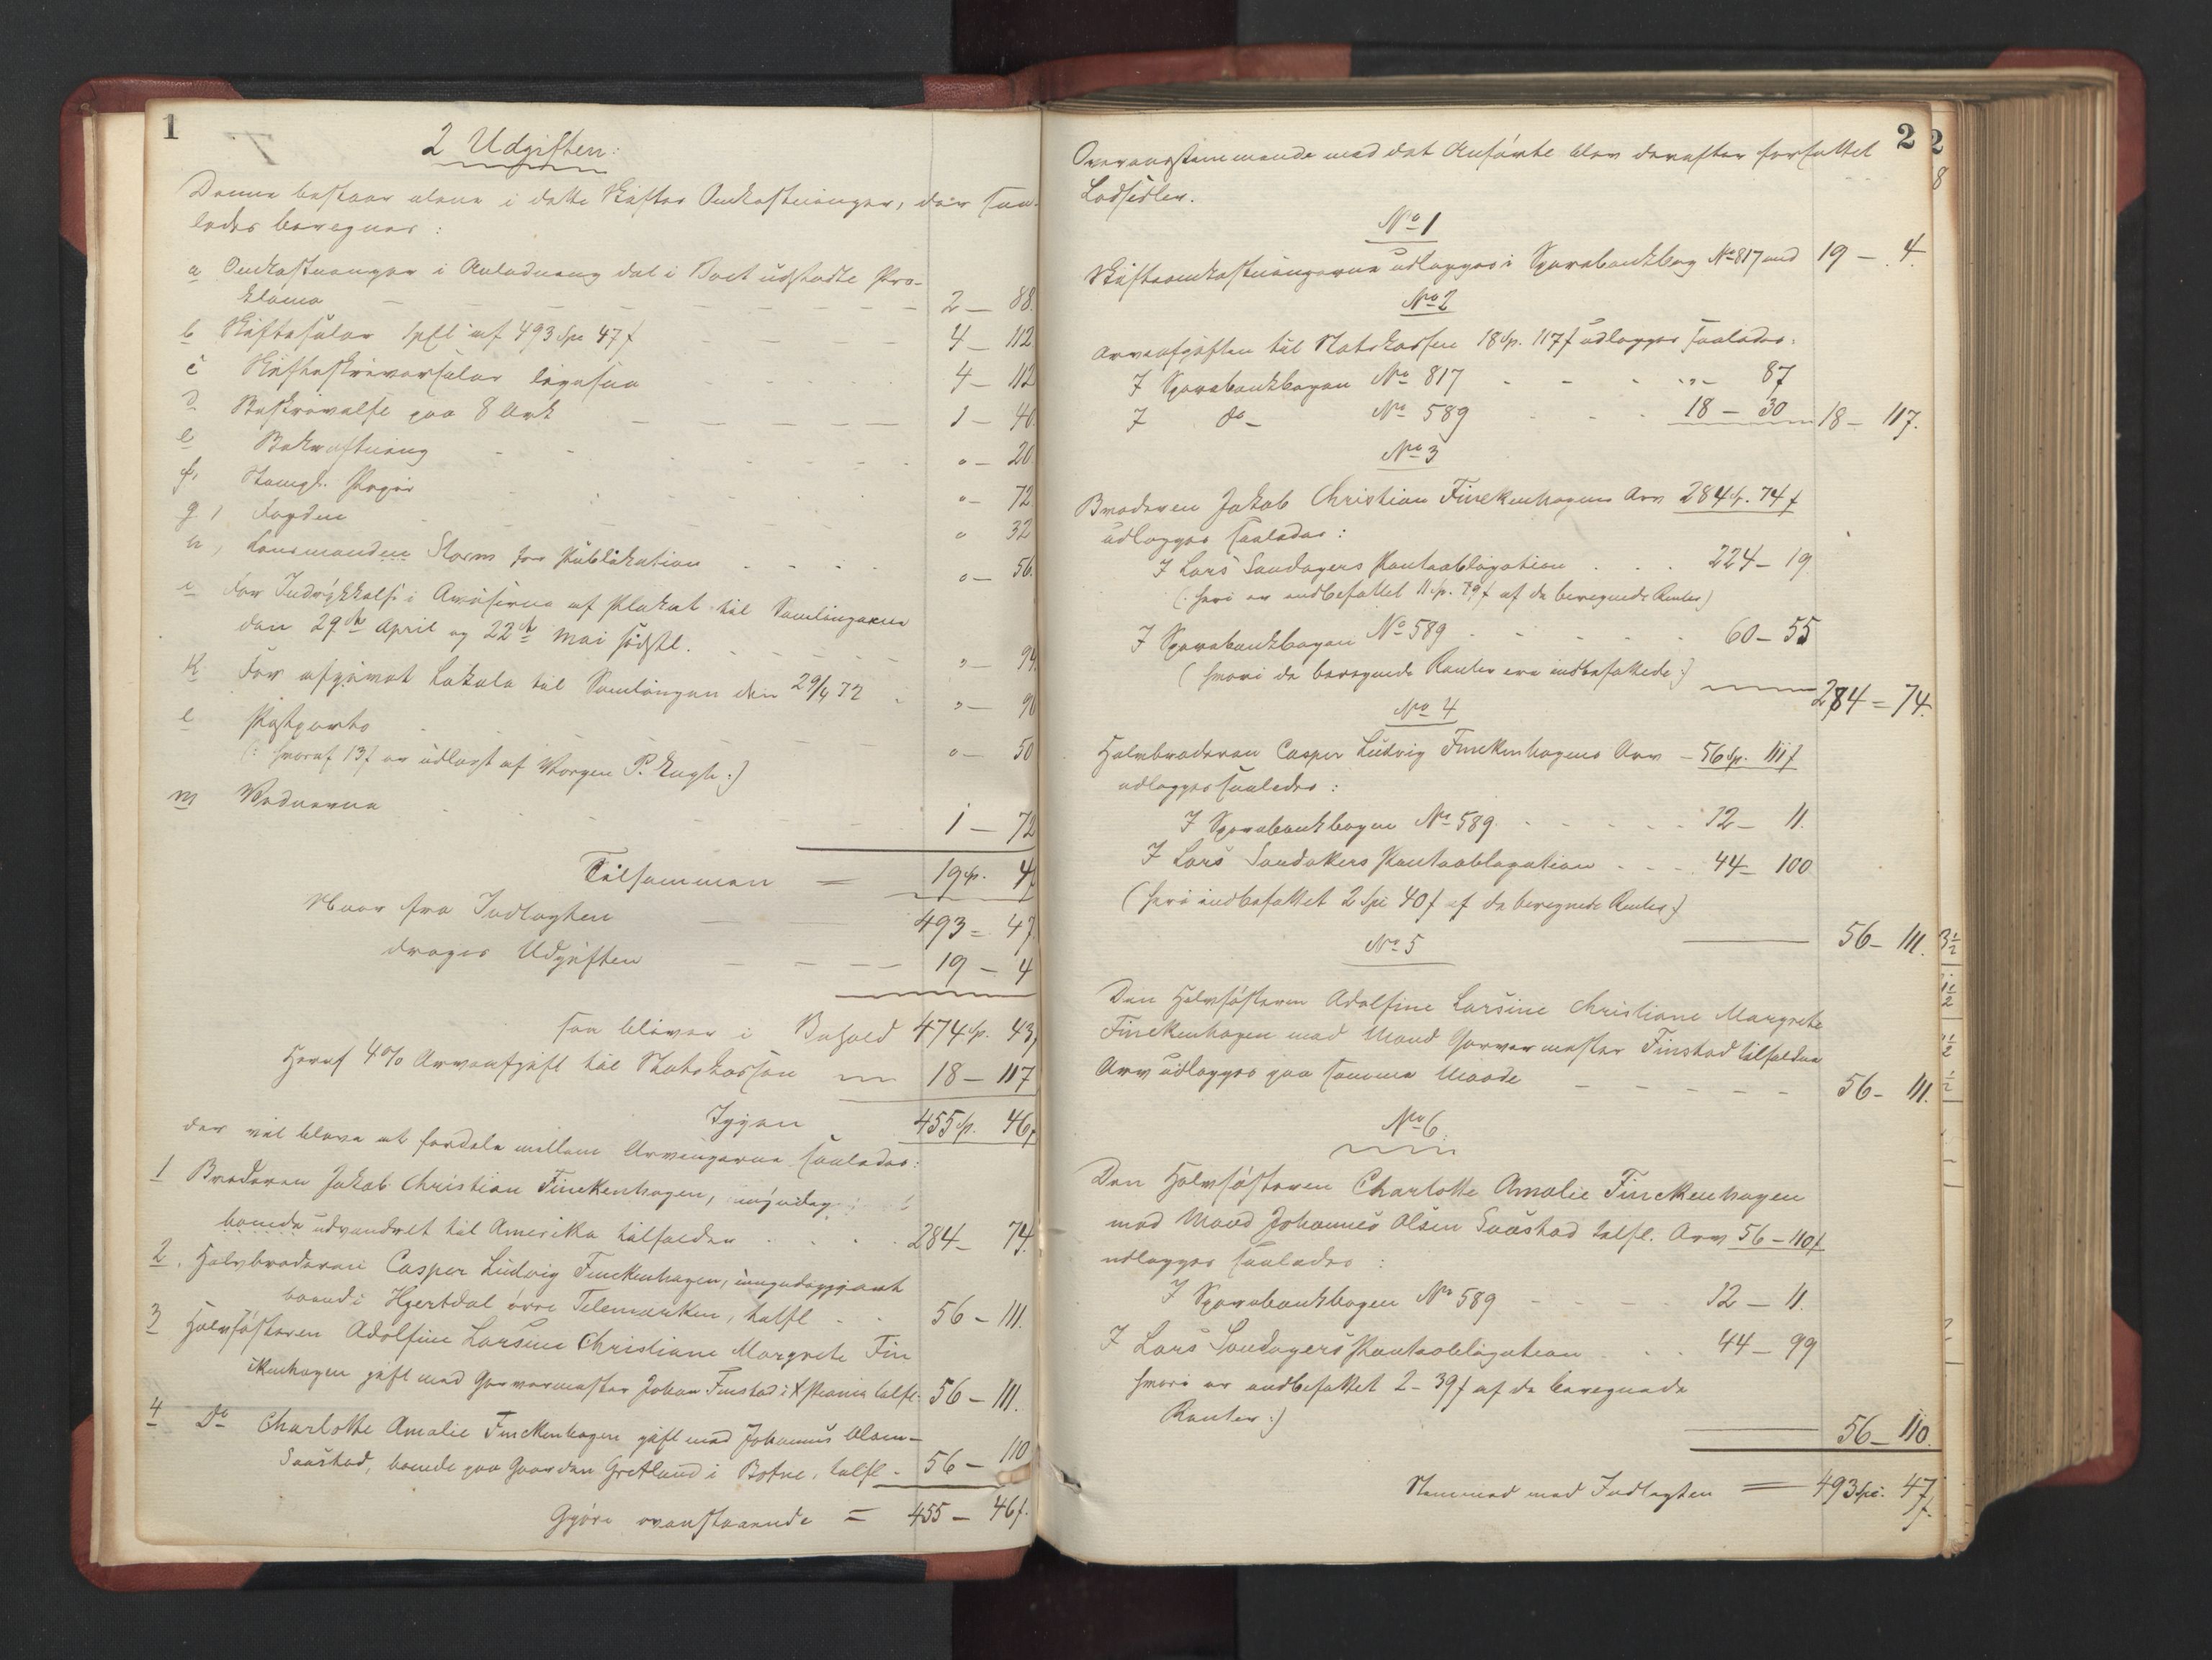 1
2 Udgiften:
Denne bestaar alene i dette Skiftes Omkostninger, der saa-
ledes beregnes:
a Omkostninger i Anledning det i Boet udstedte Pro-
klama — 2 — 88.
b Skiftesalær 1pCt af 493 Spd 47 f 4 — 112
c Skifteskriversalær ligesaa 4 — 112
d Beskrivelse paa 8 Ark 1 — 40.
e Bekræftning " — 20
f, Stempl. Papir " — 72
g, Fogden " 32
h, Lensmanden Storm for Publikation " — 56.
i For Indrykkelse i Aviserne af Plakat til Samlingerne
den 29de April og 22de Mai sidstl. " — 94.
k For afgivet Lokale til Samlingen den 29/4 72 " — 96
l Postporto " — 50
(: hvoraf 13 f er udlagt af Værgen P. Engh :)
m Vidnerne 1 — 72
Tilsammen = 19 Sp. 4 f
Naar fra Indtægten 493 = 47
drages Udgiften 19 — 4
saa bliver i Behold 474 Sp. 43 f
Heraf 4% Arveafgift til Statskassen 18 — 117
Igjen 455 Sp. 46 f
der vil blive at fordele mellem Arvingerne saaledes:
1 Broderen Jakob Christian Finckenhagen, myndig
boende udvandret til Amerika tilfalder 284 — 74.
2, Halvbroderen Casper Ludvig Finckenhagen,
boende i Hjertdal øvre Telemarken, tilfl 56 — 111.
3 Halvsøsteren Adolfine Larsine Christiane Margrete Fin
ckenhagen gift med Garvermester Johan Finstad i Xstiania tilfl. 56 — 111.
4 Do Charlotte Amalie Finckenhagen gift med Johannes Olsen
Saastad, boende paa Gaarden Gretland i Botne, tilfl. 56 — 110
Gjøre ovenstaaende = 455 — 46 f.
2
Overensstemmende med det Anførte blev derefter forfattet
Lodsedler.
No 1
Skifteomkostningerne udlægges i Sparebankbog No 817 med 19 — 4.
No 2
Arveafgiften til Statskassen 18 Sp. 117 f udlægges saaledes:
I Sparebankbogen No 817 " — 87
I do — No 589 18 — 30 18 — 117.
No 3
Broderen Jakob Christian Finckenhagens Arv 284 Sp. 74 f
udlægges saaledes:
I Lars Sandagers Panteobligation 224 — 19
(: heri er indbefattet 11 Sp. 79 f af de beregnede Renter)
I Sparebankbogen No 589 60 — 55
(hvori de beregnede Renter ere indbefattede :)
284 = 74.
No 4
Halvbroderen Casper Ludvig Finckenhagens Arv — 56 Sp. 111 f
udlægges saaledes:
I Sparebankbogen No 589 12 — 11.
I Lars Sandakers Panteobligation 44 — 100
(heri indbefattet 2 Spd 40 f af de beregnede Renter)
56 — 111.
No 5
Den Halvsøsteren Adolfine Larsine Christiane Margrete
Finckenhagen med Mand Garvermester Finstad tilfaldne
Arv udlægges paa samme Maade 56 — 111.
No 6
Den Halvsøsteren Charlotte Amalie Finckenhagen
med Mand Johannes Olsen Saastad tilfl. Arv 56 — 110 f
udlægges saaledes:
I Sparebankbogen No 589 12 — 11.
I Lars Sandagers Panteobligation 44 — 99
hvori er indbefattet 2 — 39 f af de beregnede
Renter :)
56 — 110.
Stemmed med Indtægten = 493 Spd. 47 f.